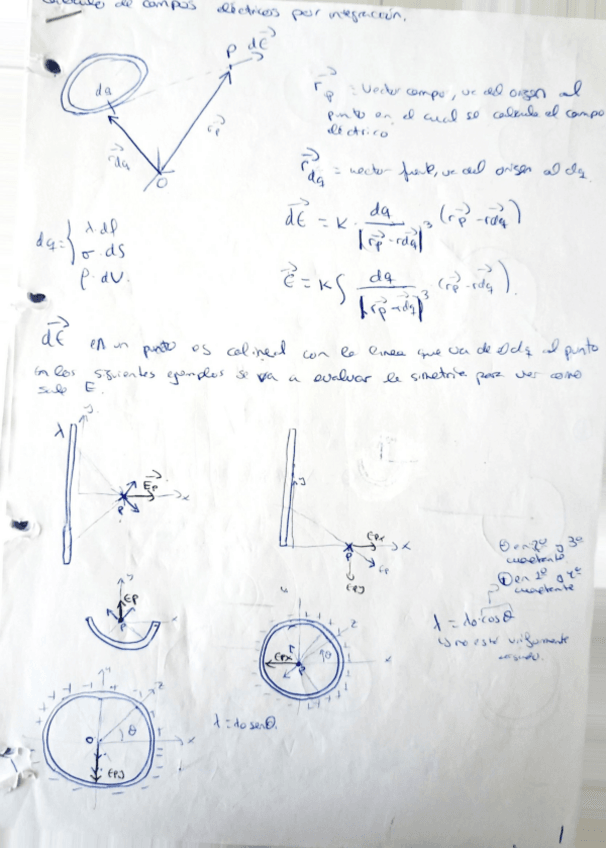 Cálculo de campos eléctricos por integración.
P dE
dq
rp
rdq
O
rp = vector campo, va del origen al
punto en el cual se calcula el campo
eléctrico
rdq = vector fuente, va del origen al dq.
dq = { λ.dl
σ.dS
ρ.dV.
dE = K . dq / |rp - rdq|³ (rp - rdq)
E = K ∫ dq / |rp - rdq|³ (rp - rdq).
dE en un punto es colineal con la linea que va de dq al punto
en los siguientes ejemplos se va a evaluar la simetria para ver como
sale E.
λ y
Ep
P x
y
Epx x
P
Ep
Epy
⊖ en 2º y 3º
cuadrante
⊕ en 1º y 4º
cuadrante
λ = λo.cosθ
no esté uniformemente
cargado.
y
Ep
P x
Epx θ
P x
λ = λo senθ.
θ
O x
Epy
1